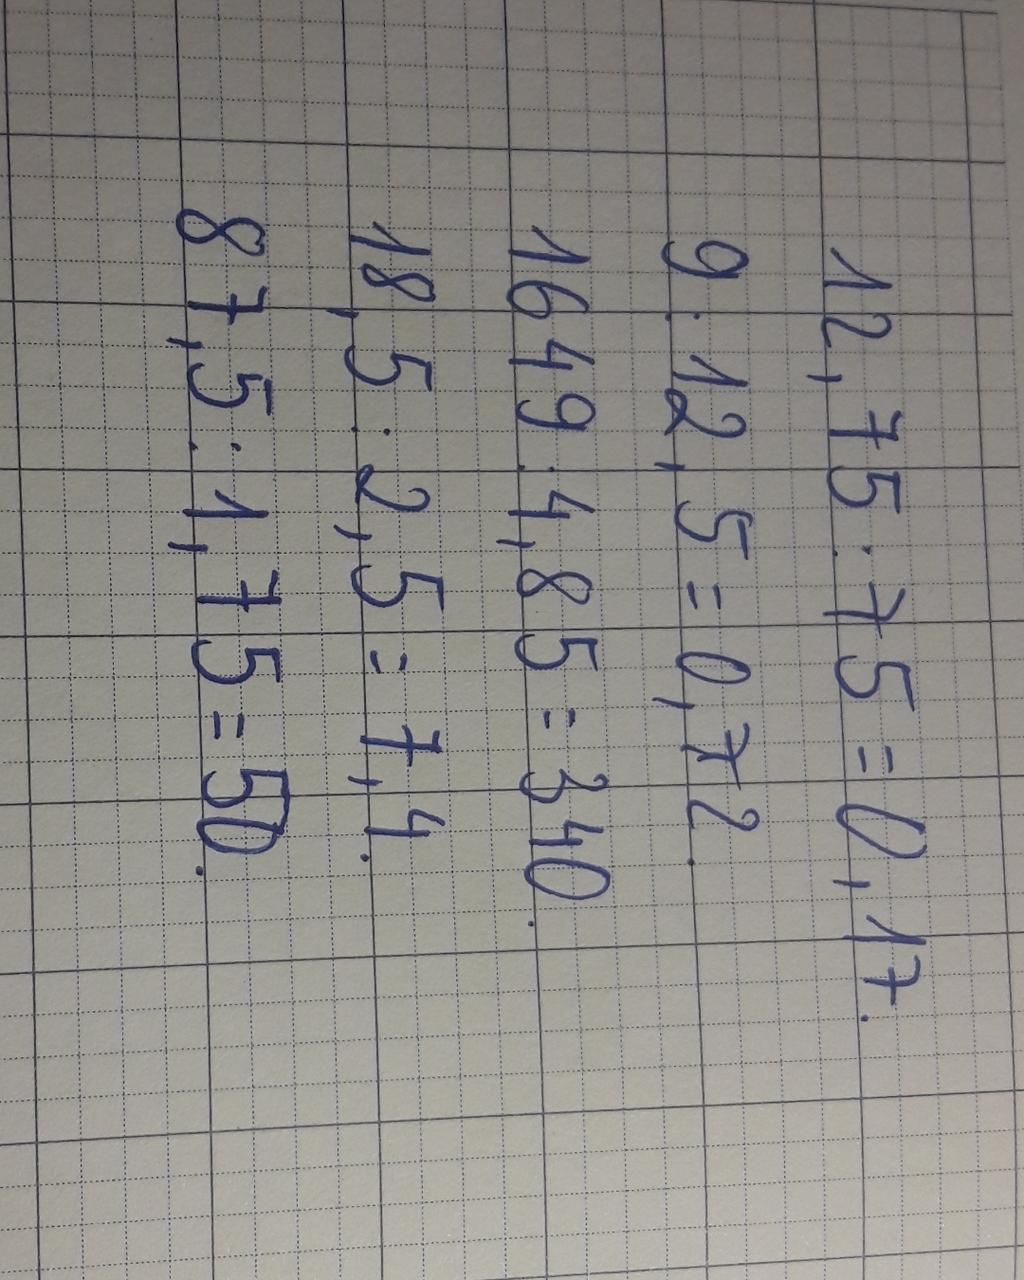 12,75:75=0,17.
9:12,5=0,72.
1649:4,85=340.
18,5:2,5=7,4.
87,5:1,75=50.